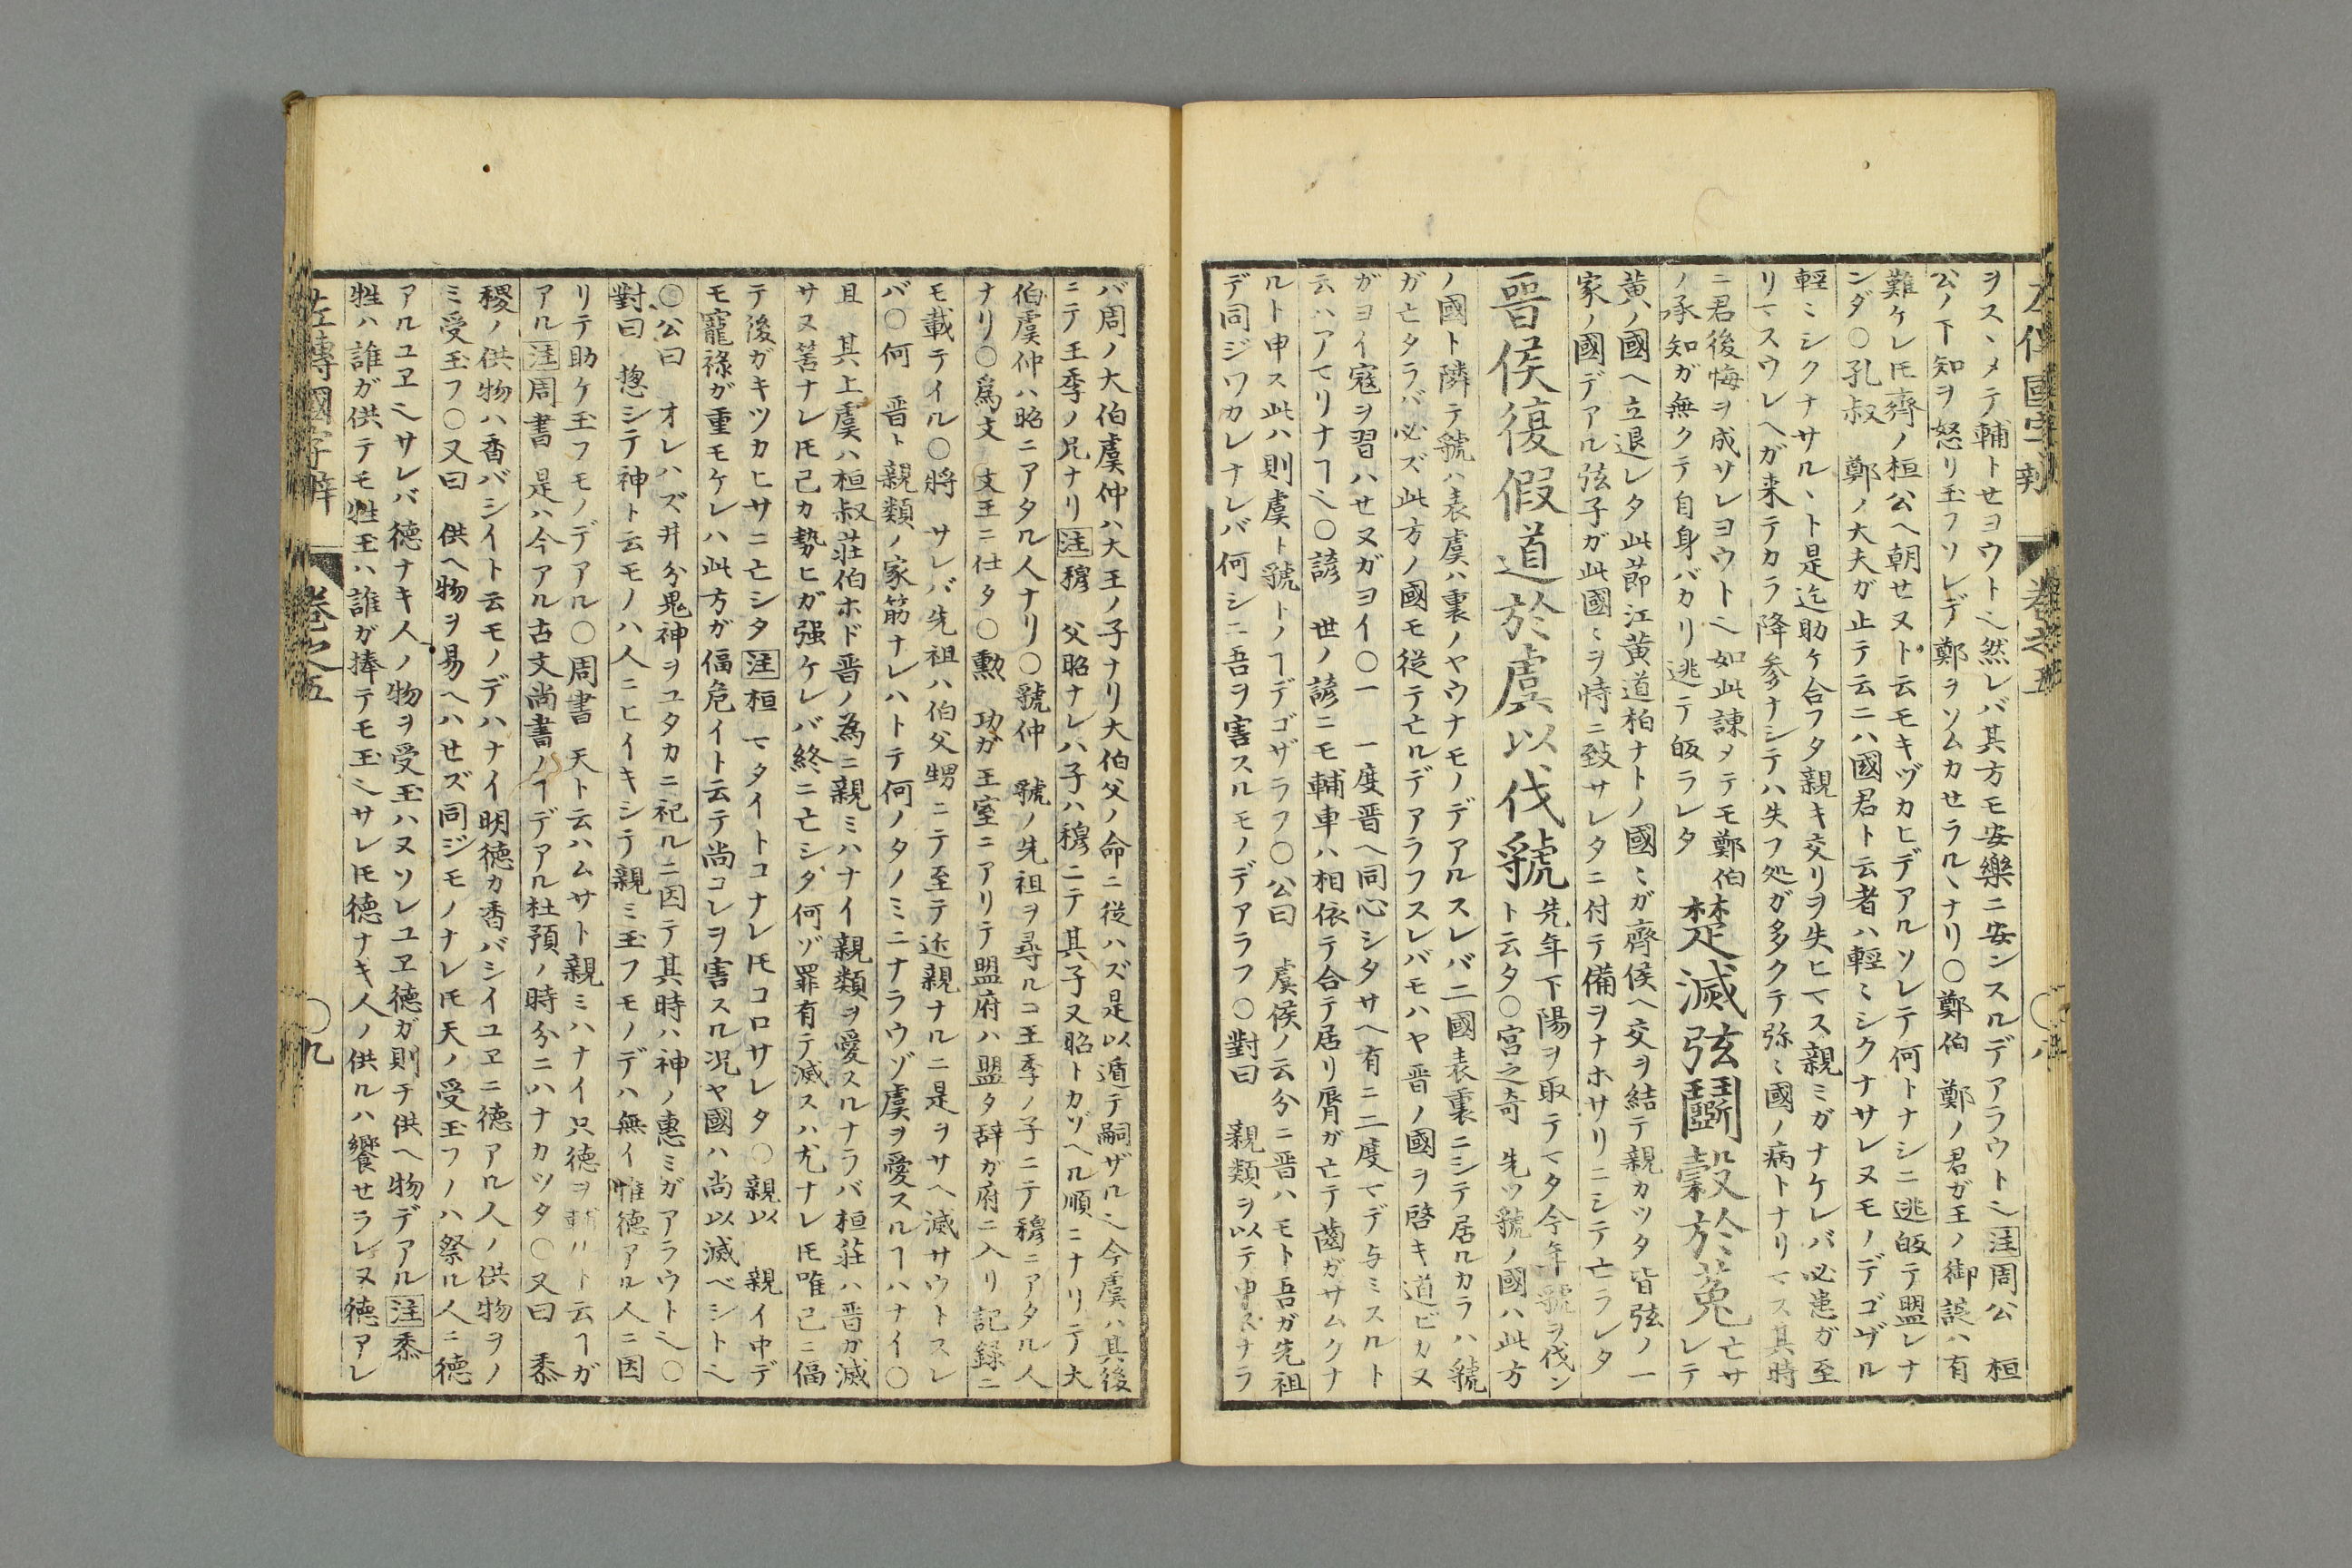 左傳國字辯 卷之五 〇八
ヲスヽメテ輔トセヨウト〻然レバ其方モ安樂ニ安ンスルデアラウト〻注周公 桓
公ノ下知ヲ怒リ玉フソレデ鄭ヲソムカセラルヽナリ〇鄭伯 鄭ノ君ガ王ノ御誤ハ有
難ケレ𪜈齊ノ桓公ヘ朝セヌト云モキヅカヒデアルソレテ何トナシニ逃皈テ盟レナ
ンダ〇孔叔 鄭ノ大夫ガ止テ云ニハ國君ト云者ハ輕〻シクナサレヌモノデゴザル
輕〻シクナサルヽト是迄助ケ合フタ親キ交リヲ失ヒマス親ミガナケレバ必患ガ至
リマスウレヘガ来テカラ降参ナシテハ失フ処ガ多クテ弥〻國ノ病トナリマス其時
ニ君後悔ヲ成サレヨウト〻如此諌メテモ鄭伯
ノ承知ガ無クテ自身バカリ逃テ皈ラレタ
楚滅弦鬭穀於菟
亡サ
レテ
黄ノ國ヘ立退レタ此節江黄道柏ナトノ國〻ガ齊侯ヘ交ヲ結テ親カツタ皆弦ノ一
家ノ國デアル弦子ガ此國〻ヲ恃ニ致サレタニ付テ備ヲナホサリニシテ亡ラレタ
晋侯復假道於虞以伐虢
先年下陽ヲ取テマタ今年虢ヲ伐ン
ト云タ〇宮之奇 先ツ虢ノ國ハ此方
ノ國ト隣テ虢ハ表虞ハ裏ノヤウナモノデアルスレバ二國表裏ニシテ居ルカラハ虢
ガ亡タラバ必ズ此方ノ國モ従テ亡ルデアラフスレバモハヤ晋ノ國ヲ啓キ道ビカヌ
ガヨイ寇ヲ習ハセヌガヨイ〇一 一度晋ヘ同心シタサヘ有ニ二度マデ与ミスルト
云ハアマリナヿ〻〇諺 世ノ諺ニモ輔車ハ相依テ合テ居リ脣ガ亡テ齒ガサムクナ
ルト申ス此ハ則虞ト虢トノヿデゴザラフ〇公曰 虞侯ノ云分ニ晋ハモト吾ガ先祖
デ同ジワカレナレバ何シニ吾ヲ害スルモノデアラフ〇對曰 親類ヲ以テ申スナラ
バ周ノ大伯虞仲ハ大王ノ子ナリ大伯父ノ命ニ従ハズ是以遁テ嗣ザル〻今虞ハ其後
ニテ王季ノ兄ナリ注穆 父昭ナレハ子ハ穆ニテ其子又昭トカゾヘル順ニナリテ大
伯虞仲ハ昭ニアタル人ナリ〇虢仲 虢ノ先祖ヲ尋ルコ王季ノ子ニテ穆ニアタル人
ナリ〇爲文 文王ニ仕タ〇勲 功ガ王室ニアリテ盟府ハ盟タ辞ガ府ニ入リ記録ニ
モ載テイル〇將 サレバ先祖ハ伯父甥ニテ至テ近親ナルニ是ヲサヘ滅サウトスレ
バ〇何 晋ト親類ノ家筋ナレハトテ何ノタノミニナラウゾ虞ヲ愛スルヿハナイ〇
且 其上虞ハ桓叔莊伯ホド晋ノ為ニ親ミハナイ親類ヲ愛スルナラバ桓莊ハ晋ガ滅
サヌ筈ナレ𪜈己カ勢ヒガ强ケレバ終ニ亡シタ何ゾ罪有テ滅スハ尤ナレ𪜈唯己ニ偪
テ後ガキツカヒサニ亡シタ注桓 マタイトコナレ𪜈コロサレタ〇親以 親イ中デ
モ寵祿ガ重モケレハ此方ガ偪危イト云テ尚コレヲ害スル况ヤ國ハ尚以滅ベシト〻
〇公曰 オレハズ井分鬼神ヲユタカニ祀ルニ因テ其時ハ神ノ惠ミガアラウト〻〇
對曰 惣シテ神ト云モノハ人ニヒイキシテ親ミ玉フモノデハ無イ惟徳アル人ニ因
リテ助ケ玉フモノデアル〇周書 天ト云ハムサト親ミハナイ只徳ヲ輔ルト云ヿガ
アル注周書 是ハ今アル古文尚書ノヿデアル杜預ノ時分ニハナカツタ〇又曰 黍
稷ノ供物ハ香バシイト云モノデハナイ明徳カ香バシイユヱニ徳アル人ノ供物ヲノ
ミ受玉フ〇又曰 供ヘ物ヲ易ヘハセズ同ジモノナレ𪜈天ノ受玉フノハ祭ル人ニ徳
アルユヱ〻サレバ徳ナキ人ノ物ヲ受玉ハヌソレユヱ徳ガ則チ供ヘ物デアル注黍
牲ハ誰ガ供テモ牲玉ハ誰ガ捧テモ玉〻サレ𪜈徳ナキ人ノ供ルハ饗セラレヌ徳アレ
左傳國字辯 卷之五 〇九